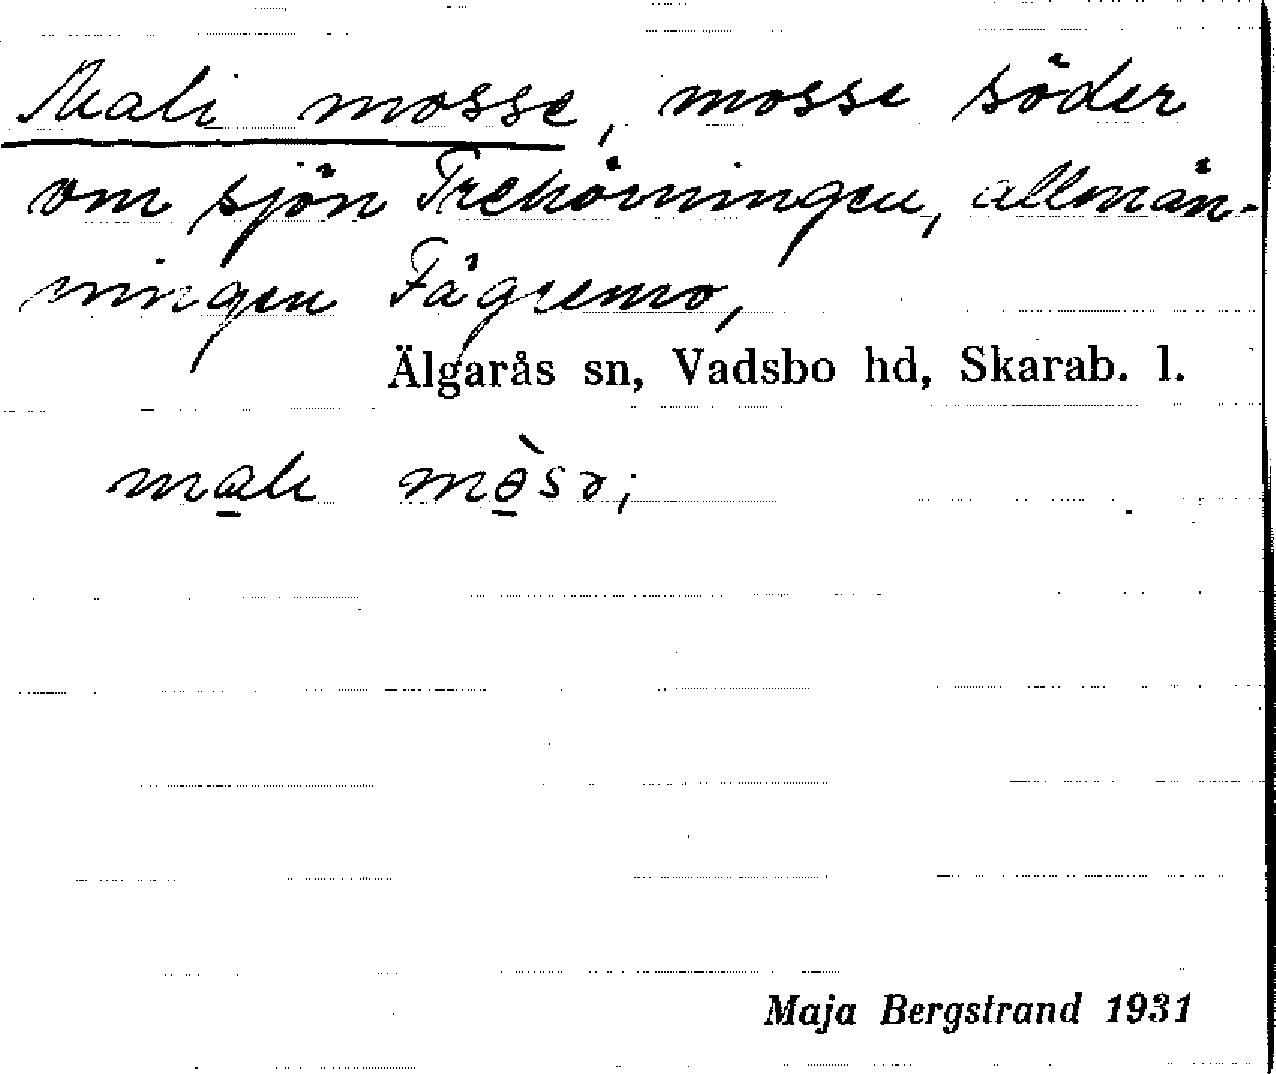 Mali mosse, mosse söder
om sjön Trehörningen, allmän-
ningen Fägremo,
Älgarås sn, Vadsbo hd, Skarab. l.
mali
Maja Bergstrand 1931